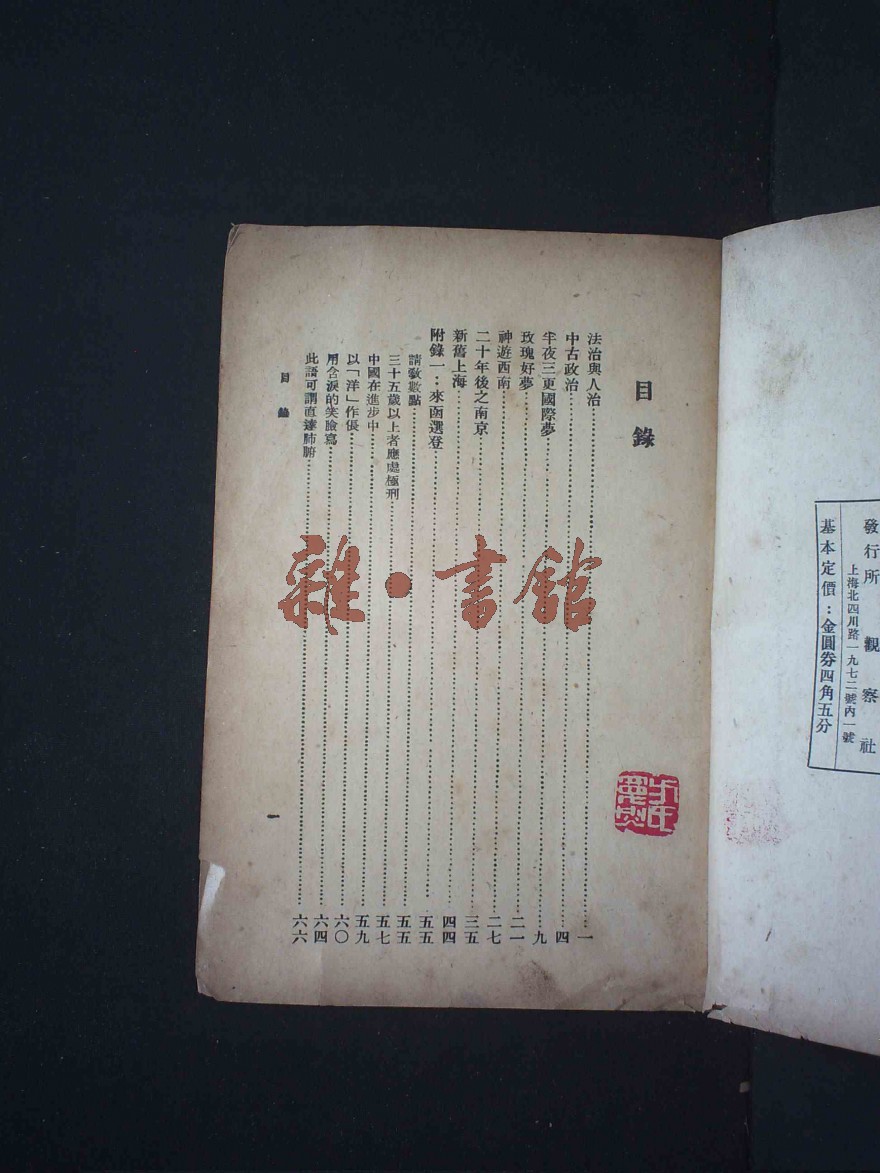 發行所 觀察社
上海北四川路一九七二號內一號
基本定價：金圓券四角五分
目錄
法治與人治……一
中古政治……四
半夜三更國際夢……九
玫瑰好夢……二一
神遊西南……二七
二十年後之南京……三五
新舊上海……四四
附錄一：來函選登……五五
請教數點……五五
三十五歲以上者應處極刑……五七
中國在進步中……五九
以「洋」作倀……六〇
用含淚的笑臉寫……六四
此語可謂直達肺腑……六六
目錄
一
雜·書館